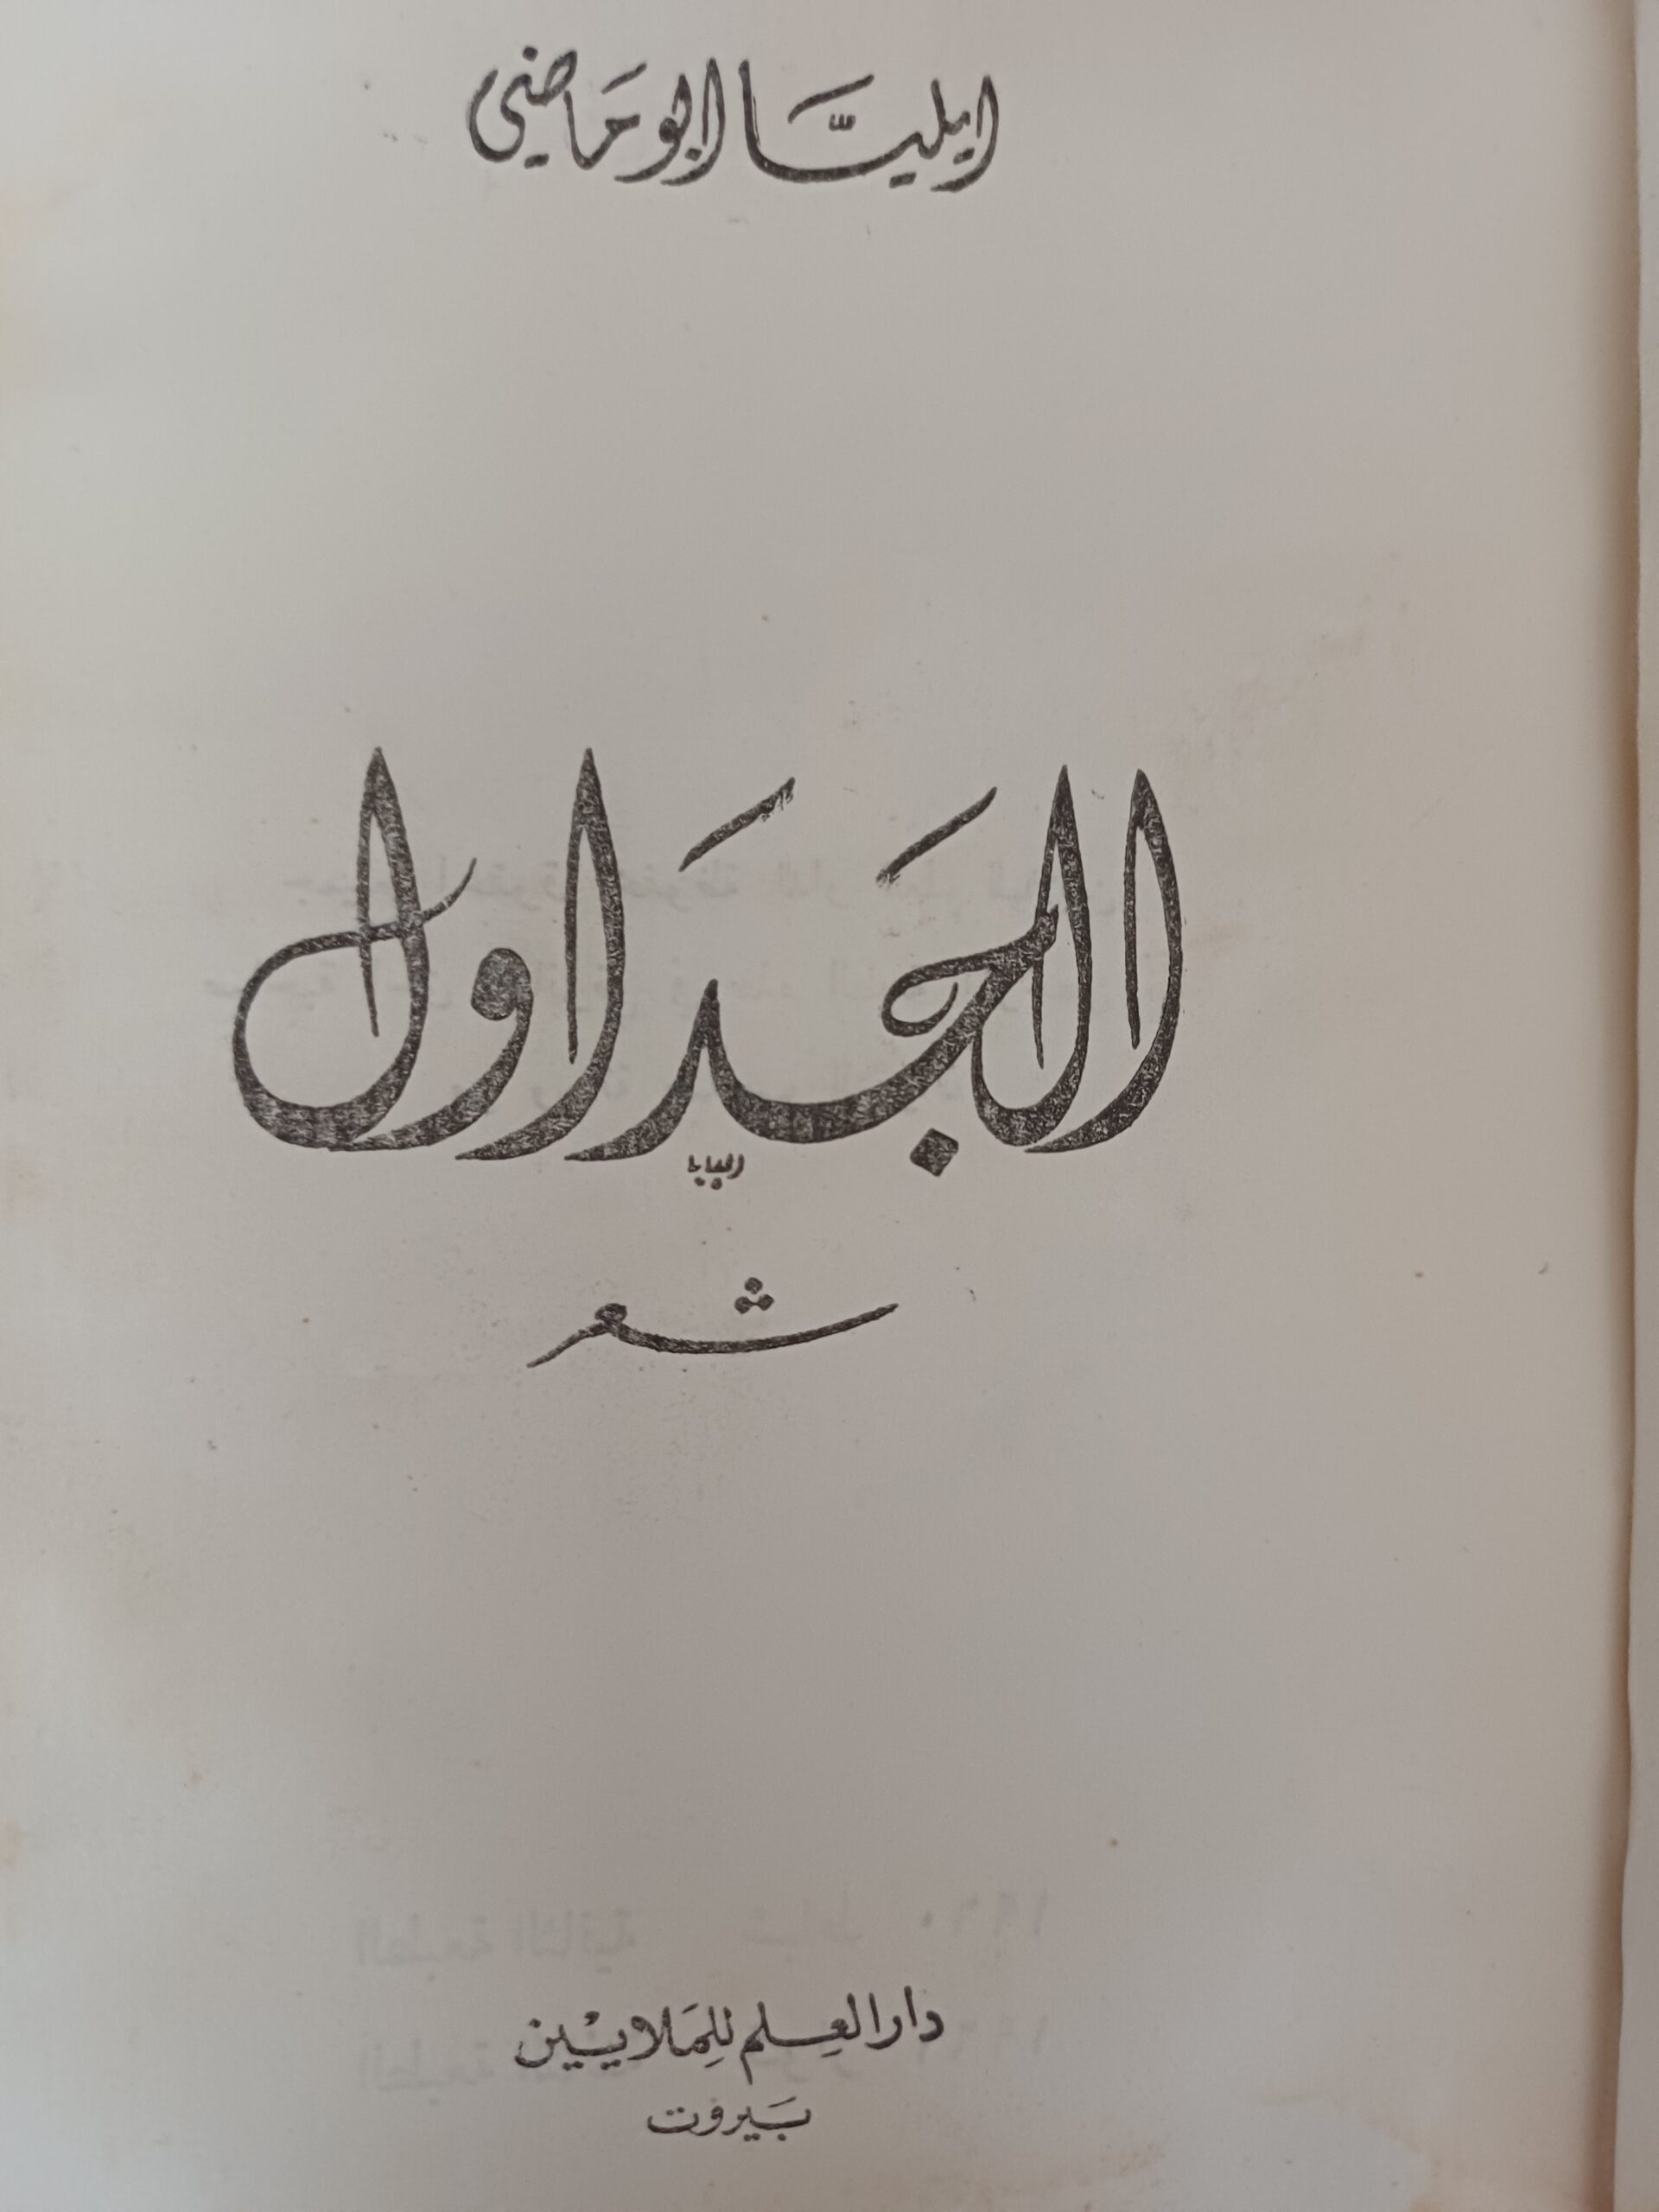 ايليَّا ابو مَاضي
الجَدَاول
البابا
شعر
دار العِلم للِمَلايْين
بَيروت